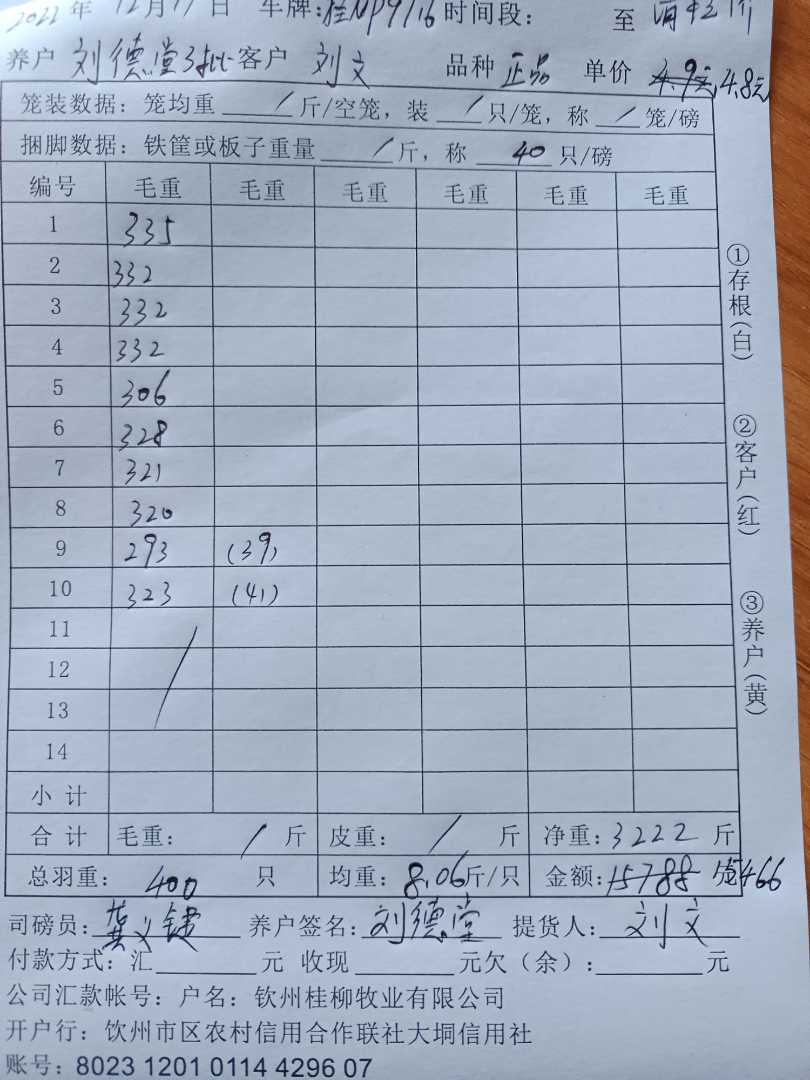 2022年 12月17日 车牌:桂NP9716 时间段: 至
养户 刘德堂3批 客户 刘文 品种 正品 单价 4.9元 4.8元
笼装数据: 笼均重 / 斤/空笼, 装 / 只/笼, 称 / 笼/磅
捆脚数据: 铁筐或板子重量 / 斤, 称 40 只/磅
编号 毛重 毛重 毛重 毛重 毛重 毛重
1 335
2 332
3 332
4 332
5 306
6 328
7 321
8 320
9 293 (39)
10 323 (41)
11
12
13
14
小计
合计 毛重: / 斤 皮重: / 斤 净重: 3222 斤
总羽重: 400 只 均重: 8.06 斤/只 金额: 15788 15466
司磅员: 养户签名: 刘德堂 提货人: 刘文
付款方式: 汇 元 收现 元欠(余): 元
公司汇款帐号: 户名: 钦州桂柳牧业有限公司
开户行: 钦州市区农村信用合作联社大垌信用社
账号: 8023 1201 0114 4296 07
①存根(白)
②客户(红)
③养户(黄)